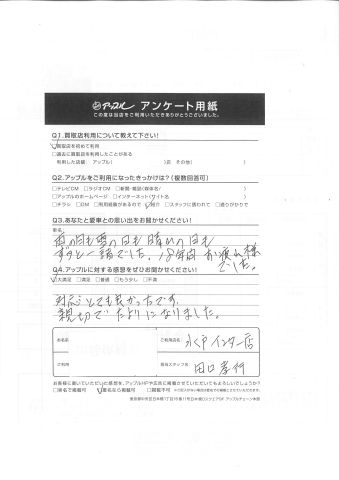 アップル アンケート用紙
この度は当店をご利用いただきありがとうございました。
Q1.買取店利用について教えて下さい!
買取店を初めて利用
□過去に買取店を利用したことがある
利用した店舗 アップル( )店 その他( )
Q2.アップルをご利用になったきっかけは?(複数回答可)
□テレビCM □ラジオCM □新聞・雑誌(媒体名/ )
□アップルのホームページ □インターネット(サイト名 )
□チラシ □DM □利用経験があるので 紹介 □スタッフに誘われて □通りがかりで
Q3.あなたと愛車との思い出をお聞かせください!
車名:
雨の日も雪の日も晴れの日も
ずっと一緒でした。18年間 お疲れ様
でした。
Q4.アップルに対する感想をぜひお聞かせください!
大満足 □満足 □普通 □もう少し □不満
対応がとても良かったです。
親切でたよりになりました。
お名前
ご利用店名
水戸インター店
ご利用
担当スタッフ名
田口孝行
お客様に書いていただいた感想を、アップルHPや広告に掲載させていただいてもよろしいでしょうか?
□実名で掲載可 匿名なら掲載可 □掲載不可